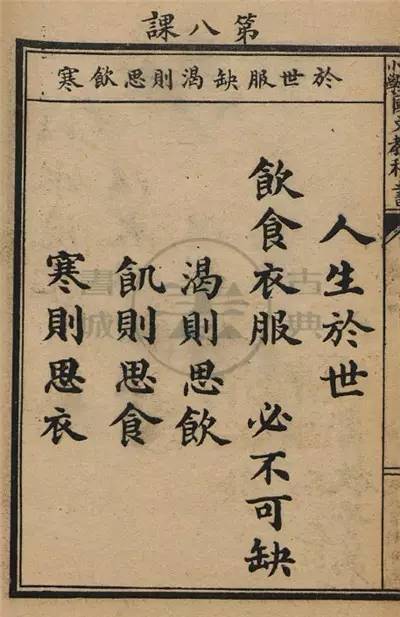 小學國文教科書
第八課
於世服缺渴則思飲寒
人生於世
飲食衣服 必不可缺
渴則思飲
飢則思食
寒則思衣
古典書城